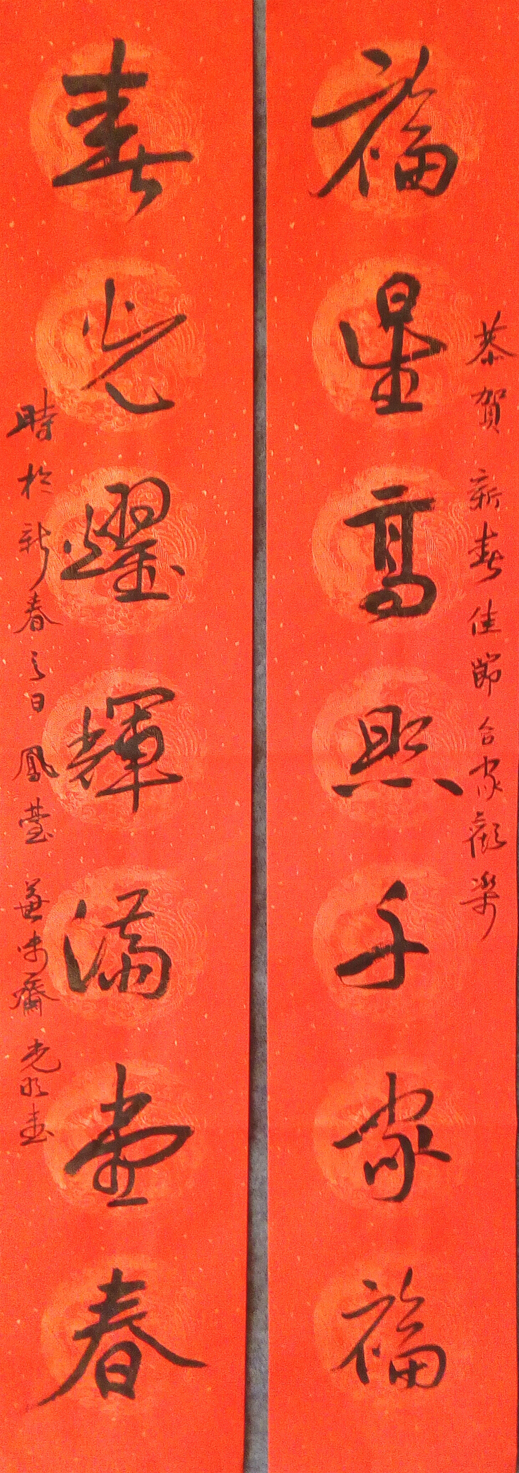 恭賀新春佳節合家歡樂
福星高照千家福
春光耀輝滿堂春
時於新春之日鳳臺兼味齋光明書